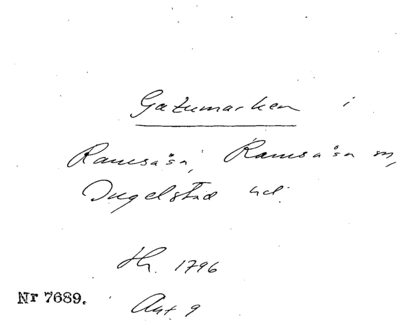 Gatumarken i
Ramsåsa, Ramsåsa sn,
Ingelstad hd.
Hr. 1796
Nr 7689.
Ant. 9